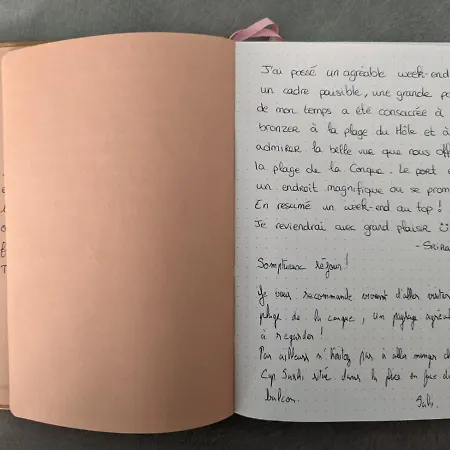 J'ai passé un agréable week-end
un cadre paisible, une grande pa
de mon temps a été consacrée à
bronzer à la plage du Môle et à
admirer la belle vue que nous off
la plage de la Conque. Le port e
un endroit magnifique ou se prom
En résumé un week-end au top !
Je reviendrai avec grand plaisir
Somptueux séjour !
Je vous recommande vivement d'aller visiter
plage de la conque, un paysage agréa
à regarder !
Par ailleurs n'hésitez pas à aller manger
Cap Sushi situé dans la place en face du
balcon.